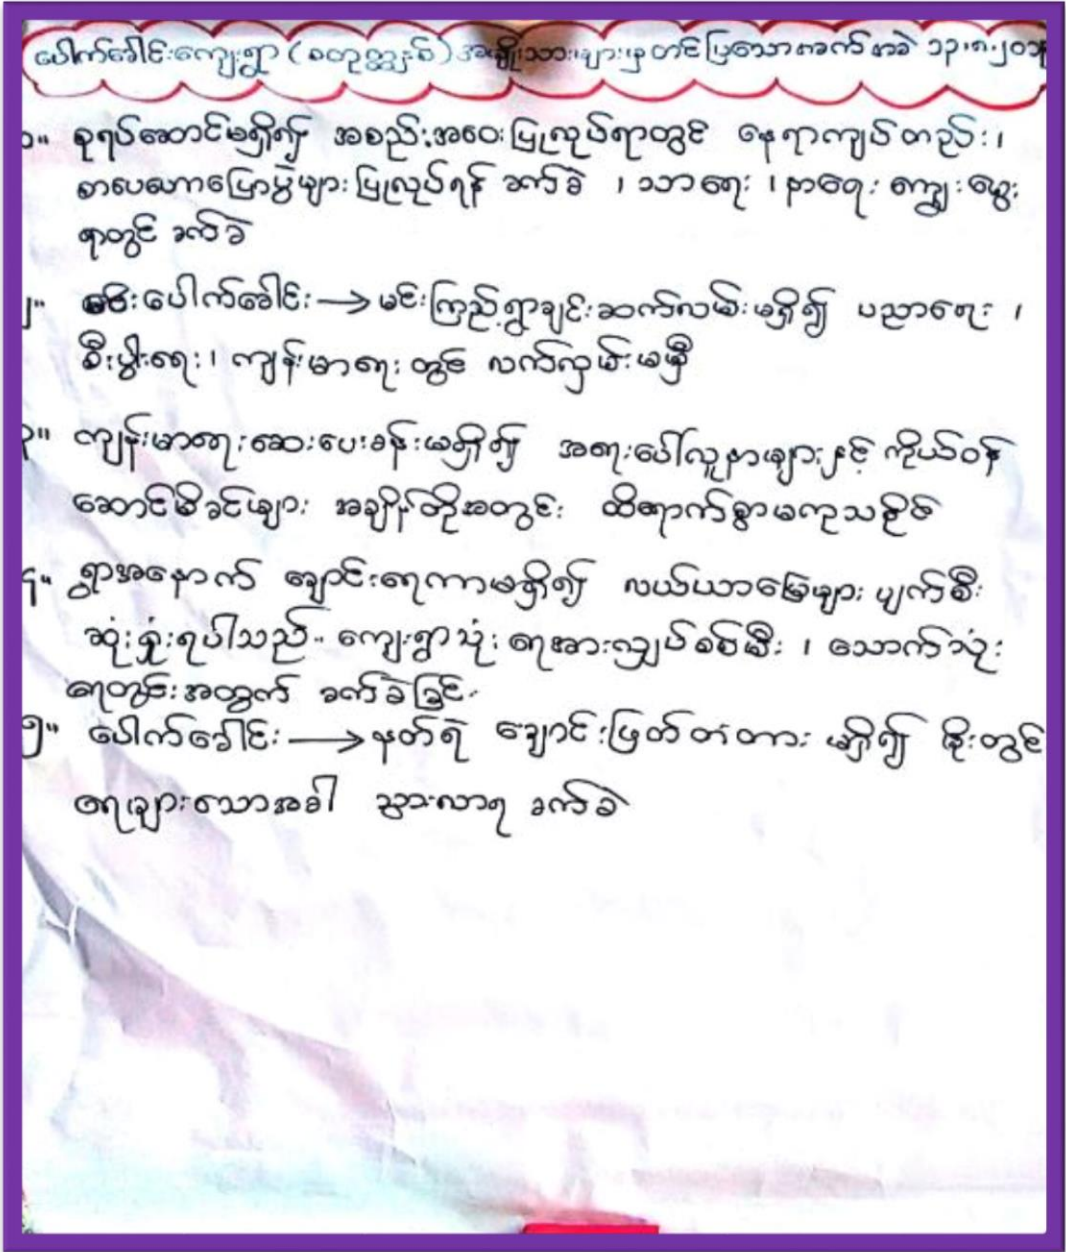 ပေါက်ခေါင်းကျေးရွာ (စတုတ္ထနှစ်) အမျိုးသားများမှ တင်ပြသောအခက်အခဲ ၁၃.၈.၂၀၁
၁။ စုရပ်ဆောင်မရှိ၍ အစည်းအဝေးပြုလုပ်ရာတွင် နေရာကျပ်တည်း၊
စာပေဟောပြောပွဲများပြုလုပ်ရန် ခက်ခဲ ၊ သာရေး ၊ နာရေး ကျွေးမွေး
ရာတွင် ခက်ခဲ
၂။ ပေါက်ခေါင်း → မင်းကြည့်ရွာချင်းဆက်လမ်းမရှိ၍ ပညာရေး ၊
စီးပွါးရေး ၊ ကျန်းမာရေး တွင် လက်လှမ်းမမှီ
၃။ ကျန်းမာရေးဆေးပေးခန်းမရှိ၍ အရေးပေါ်လူနာများနှင့် ကိုယ်ဝန်
ဆောင်မိခင်များ အချိန်တိုအတွင်း ထိရောက်စွာမကုသနိုင်
၄။ ရွာအနောက် ချောင်းရေကာမရှိ၍ လယ်ယာမြေများ ပျက်စီး
ဆုံးရှုံးရပါသည်။ ကျေးရွာသုံး ရေအားလျှပ်စစ်မီး ၊ သောက်သုံး
ရေတွင်းအတွက် ခက်ခဲခြင်း
၅။ ပေါက်ခေါင်း → နတ်ရဲ ချောင်းဖြတ်တံတား မရှိ၍ မိုးတွင်
ရေများသောအခါ သွားလာရ ခက်ခဲ